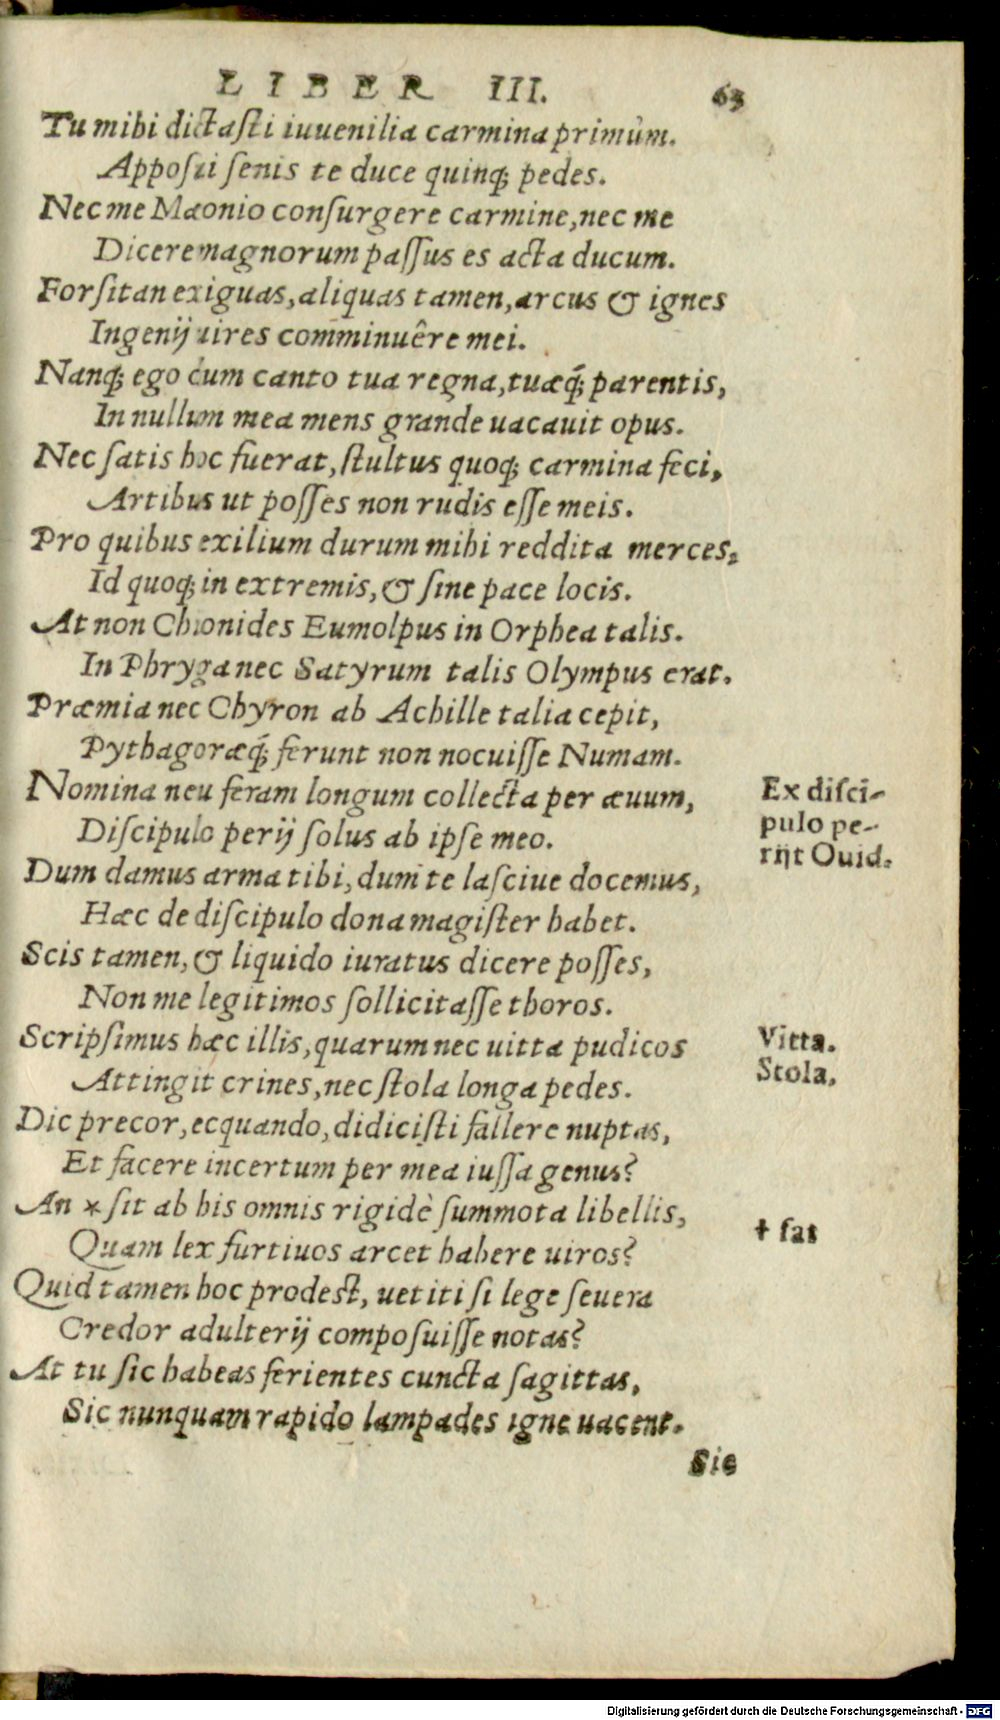 LIBER III. 63
Tu mihi dictasti iuuenilia carmina primùm.
Apposui senis te duce quinq; pedes.
Nec me Mæonio consurgere carmine, nec me
Dicere magnorum passus es acta ducum.
Forsitan exiguas, aliquas tamen, arcus & ignes
Ingenij uires comminuêre mei.
Nanq; ego cum canto tua regna, tuæq́; parentis,
In nullum mea mens grande uacauit opus.
Nec satis hoc fuerat, stultus quoq; carmina feci,
Artibus ut posses non rudis esse meis.
Pro quibus exilium durum mihi reddita merces,
Id quoq; in extremis, & sine pace locis.
At non Chionides Eumolpus in Orphea talis.
In Phryga nec Satyrum talis Olympus erat.
Præmia nec Chyron ab Achille talia cepit,
Pythagoræq́; ferunt non nocuisse Numam.
Nomina neu feram longum collecta per æuum,
Discipulo perij solus ab ipse meo.
Dum damus arma tibi, dum te lasciue docemus,
Hæc de discipulo dona magister habet.
Scis tamen, & liquido iuratus dicere posses,
Non me legitimos sollicitasse thoros.
Scripsimus hæc illis, quarum nec uitta pudicos
Attingit crines, nec stola longa pedes.
Dic precor, ecquando, didicisti fallere nuptas,
Et facere incertum per mea iussa genus?
An * sit ab his omnis rigidè summota libellis,
Quam lex furtiuos arcet habere uiros?
Quid tamen hoc prodest, uetiti si lege seuera
Credor adulterij composuisse notas?
At tu sic habeas ferientes cuncta sagittas,
Sic nunquam rapido lampades igne uacent.
Sic
Ex disci-
pulo pe-
rijt Ouid.
Vitta.
Stola.
† fat
Digitalisierung gefördert durch die Deutsche Forschungsgemeinschaft - DFG